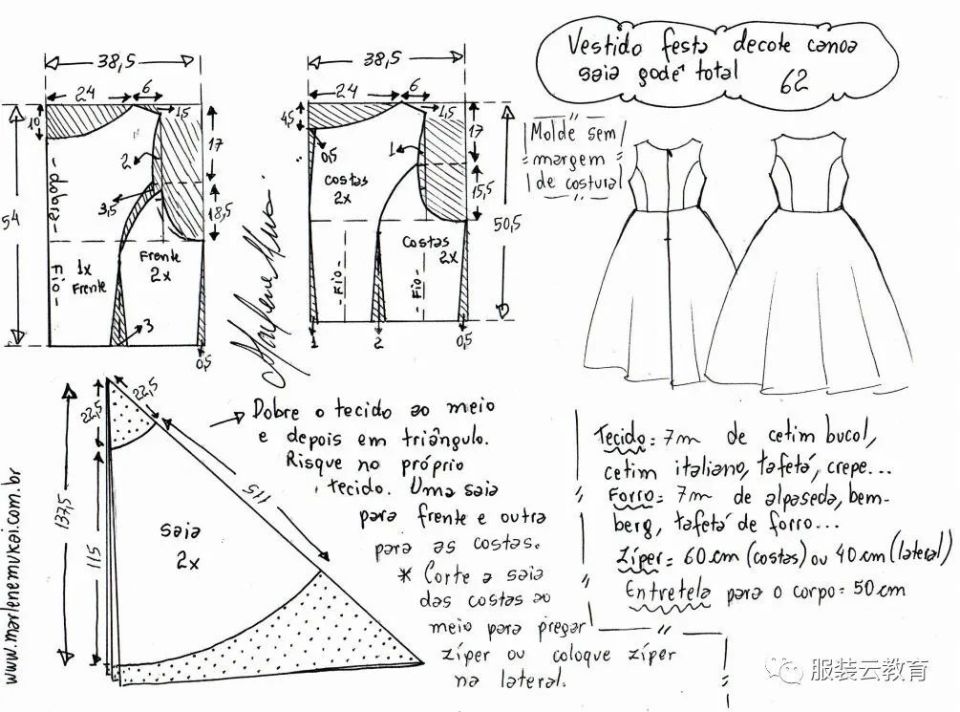 Vestido festa decote canoa
saia godê total 62
38,5
24
6
1,5
10
17
2
3,5
18,5
54
- dobra -
Fio -
1x
Frente
Frente
2x
3
0,5
38,5
24
6
1,5
4,5
0,5
17
1
15,5
50,5
costas
2x
Costas
2x
- Fio -
- Fio -
1
2
0,5
Molde sem
margem
de costura
22,5
22,5
137,5
115
115
saia
2x
Dobre o tecido ao meio
e depois em triângulo.
Risque no próprio
tecido. Uma saia
para frente e outra
para as costas.
* Corte a saia
das costas ao
meio para pregar
zíper ou coloque zíper
na lateral.
Tecido = 7m de cetim bucol,
cetim italiano, tafetá, crepe...
Forro = 7m de alpaseda, bem-
berg, tafetá de forro...
Zíper = 60 cm (costas) ou 40 cm (lateral)
Entretela para o corpo = 50 cm
www.marlenemukai.com.br
Marlene Mukai
服装云教育